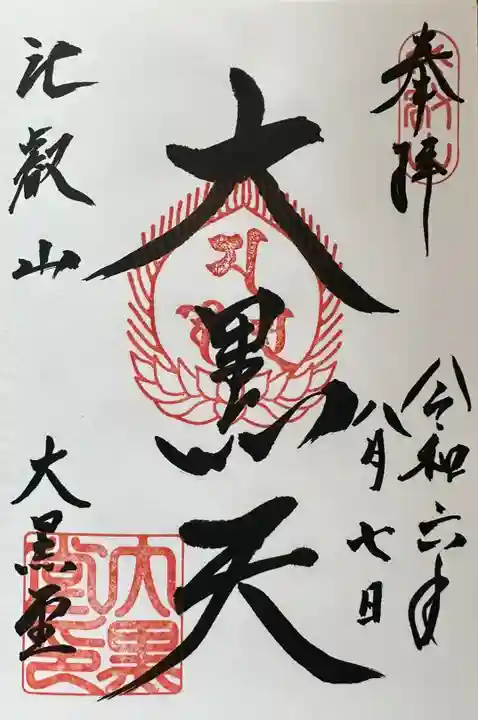 奉拝
令和六年
八月七日
大黒天
比叡山
大黒堂
比叡山
大黒堂印